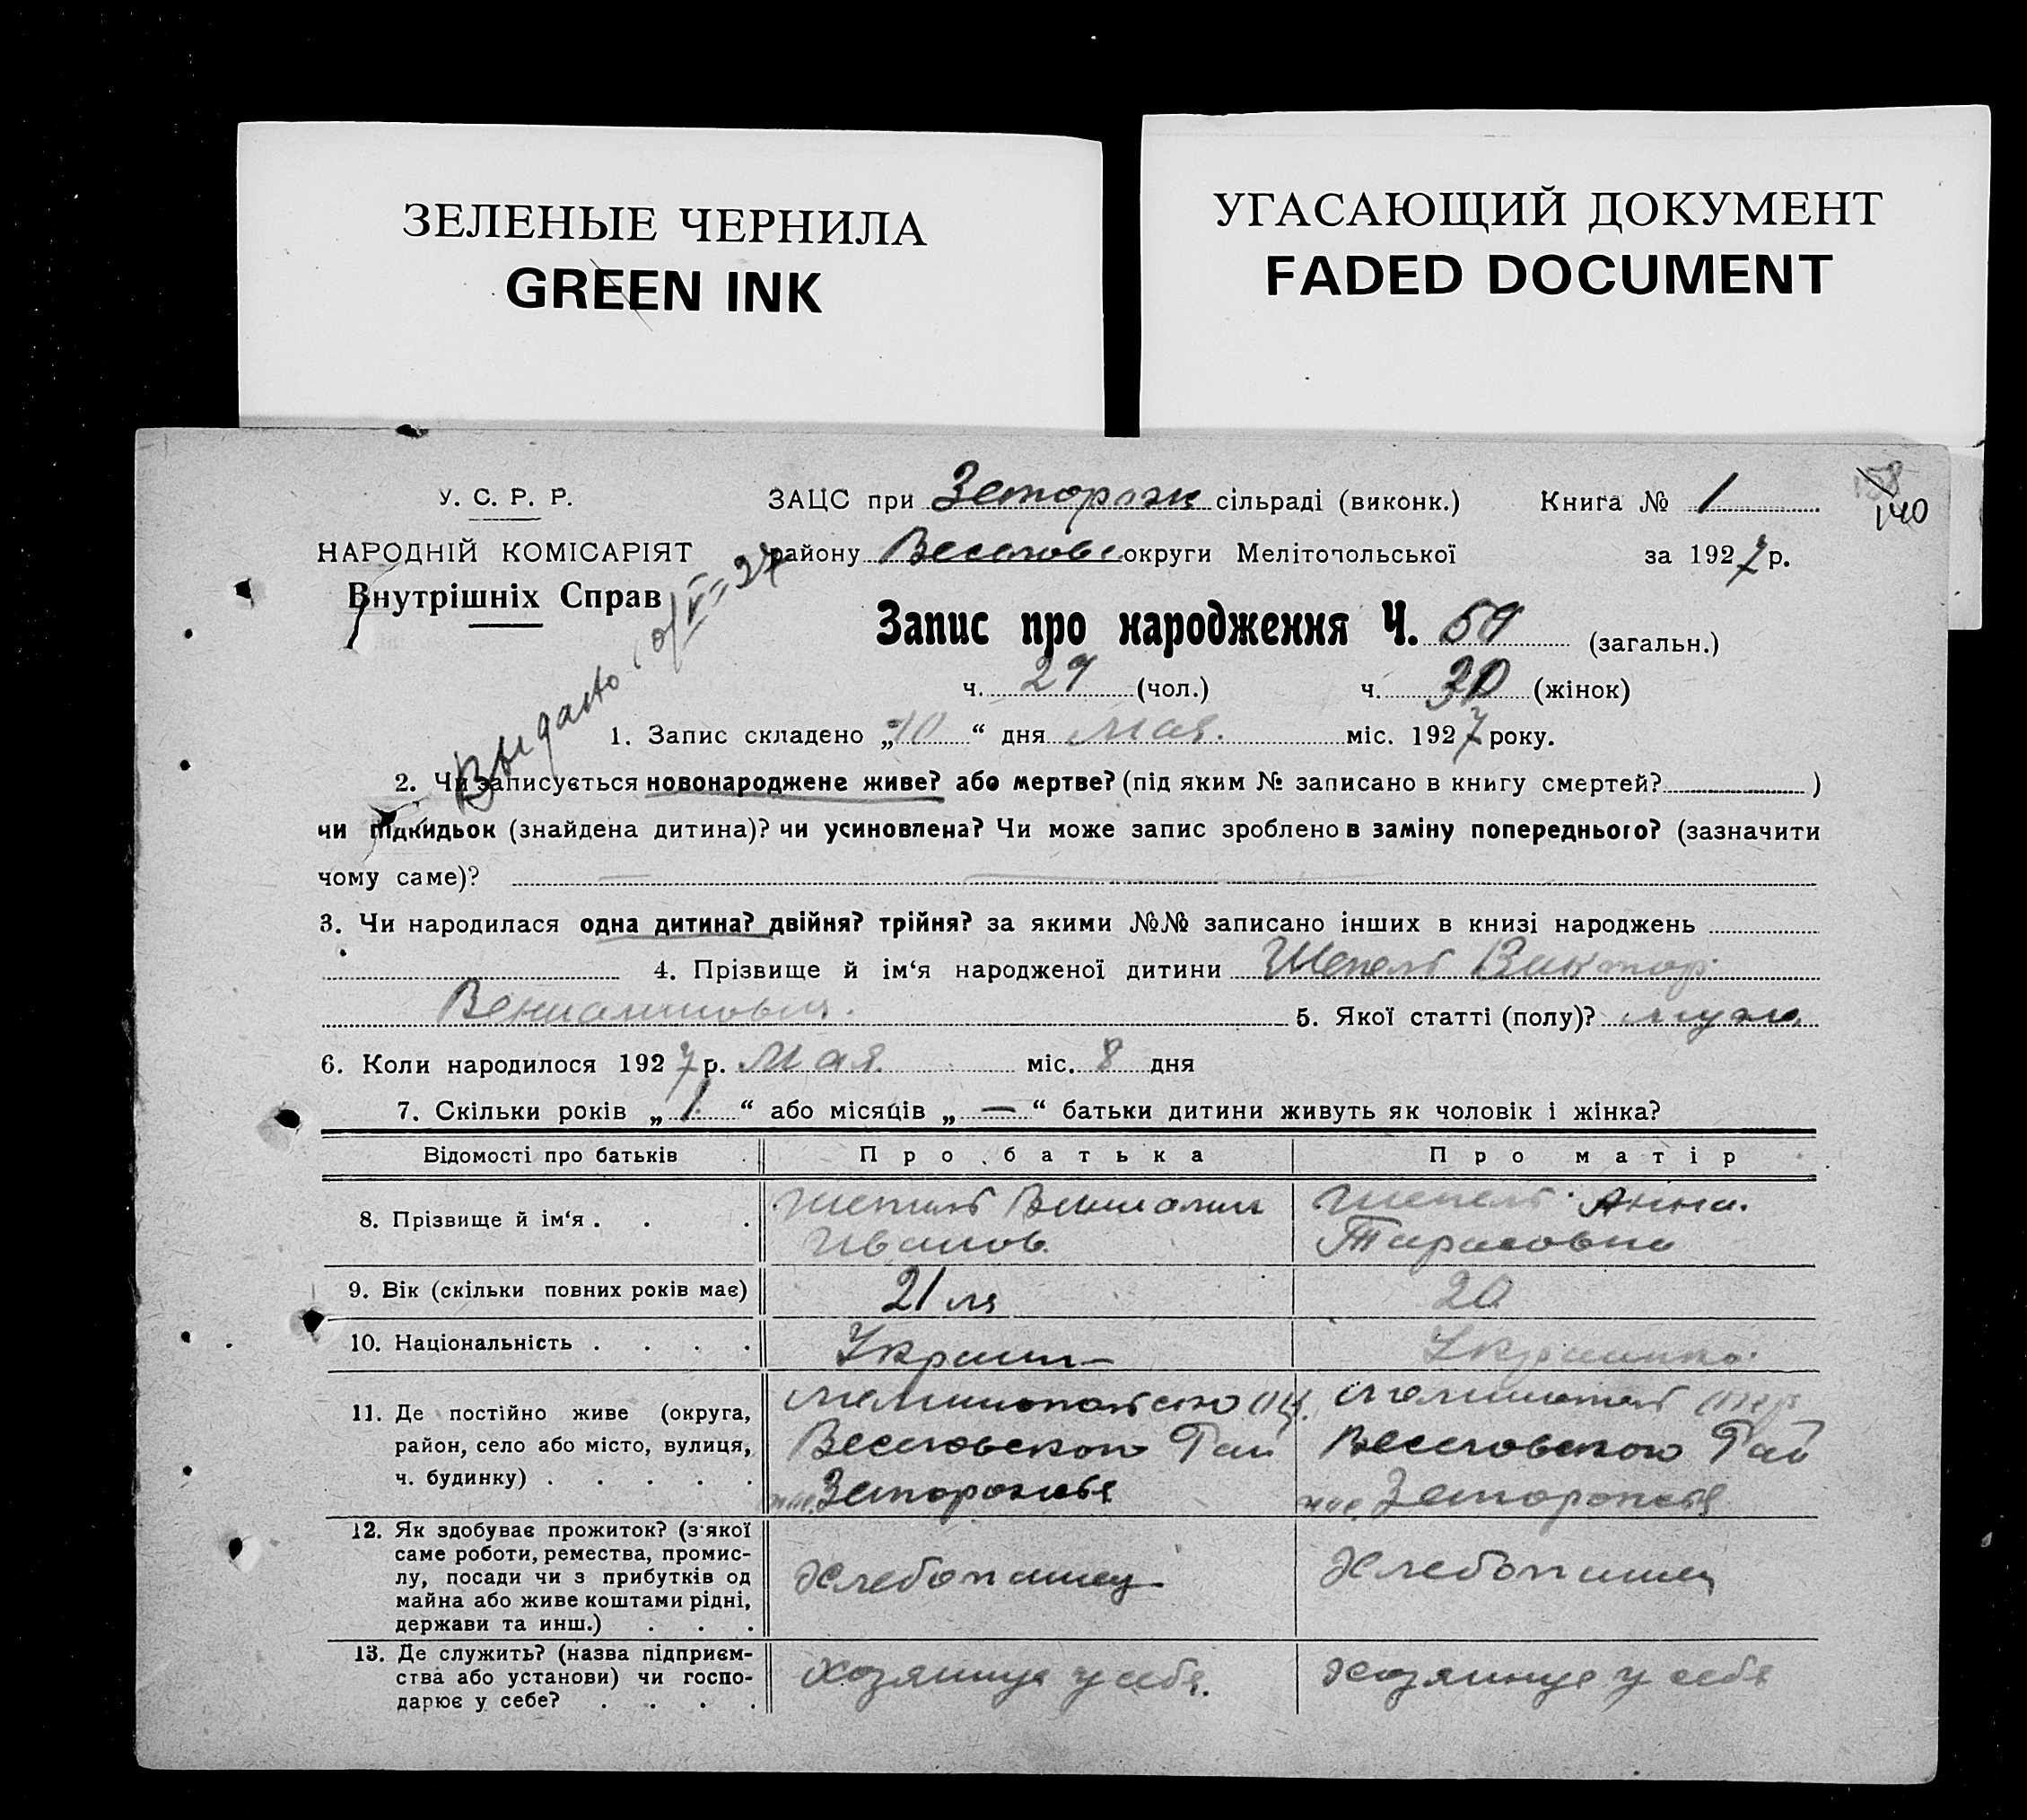 ЗЕЛЕНЫЕ ЧЕРНИЛА
GREEN INK
УГАСАЮЩИЙ ДОКУМЕНТ
FADED DOCUMENT
140
У. С. Р. Р.
НАРОДНІЙ КОМІСАРІЯТ
Внутрішніх Справ
ЗАЦС при Запорожс сільраді (виконк.) Книга № 1
району Веселовс округи Мелітопольської за 1927 р.
Запис про народження Ч. 59 (загальн.)
ч. 29 (чол.) ч. 30 (жінок)
1. Запис складено „10“ дня Мая. міс. 1927 року.
2. Чи записується новонароджене живе? або мертве? (під яким № записано в книгу смертей? )
чи підкидьок (знайдена дитина)? чи усиновлена? Чи може запис зроблено в заміну попереднього? (зазначити
чому саме)?
3. Чи народилася одна дитина? двійня? трійня? за якими №№ записано інших в книзі народжень
4. Прізвище й ім‘я народженої дитини Шепель Виктор
5. Якої статті (полу)?
6. Коли народилося 1927 р. Мая міс. 8 дня
7. Скільки років „1“ або місяців „—“ батьки дитини живуть як чоловік і жінка?
Відомості про батьків Про батька Про матір
8. Прізвище й ім‘я . . . Шепель Вениамин Иванов. Шепель Анна. Тарасовна
9. Вік (скільки повних років має) 21 20
10. Національність . . . . Украин— Украинка
11. Де постійно живе (округа,
район, село або місто, вулиця, Веселовского Рай Веселовского Рай
ч. будинку) . . . . . Запорожья Запорожья
12. Як здобуває прожиток? (з‘якої
саме роботи, ремества, промис-
лу, посади чи з прибутків од Хлебопашец Хлебопашец
майна або живе коштами рідні,
держави та инш.) . . .
13. Де служить? (назва підприєм-
ства або установи) чи госпо- хозяинуе у себя. хозяинуе у себя
дарює у себе? . . . .